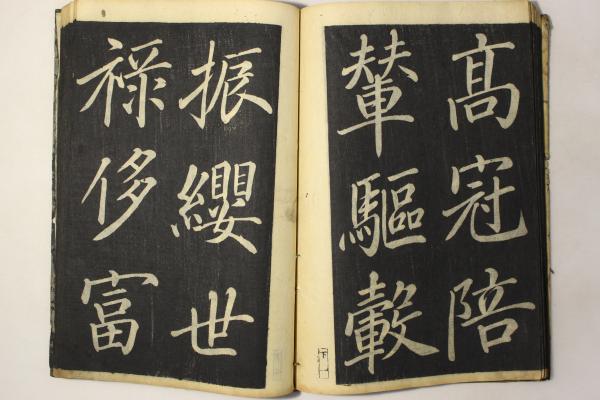 高冠陪
輦驅轂
振纓世
祿侈富
下一